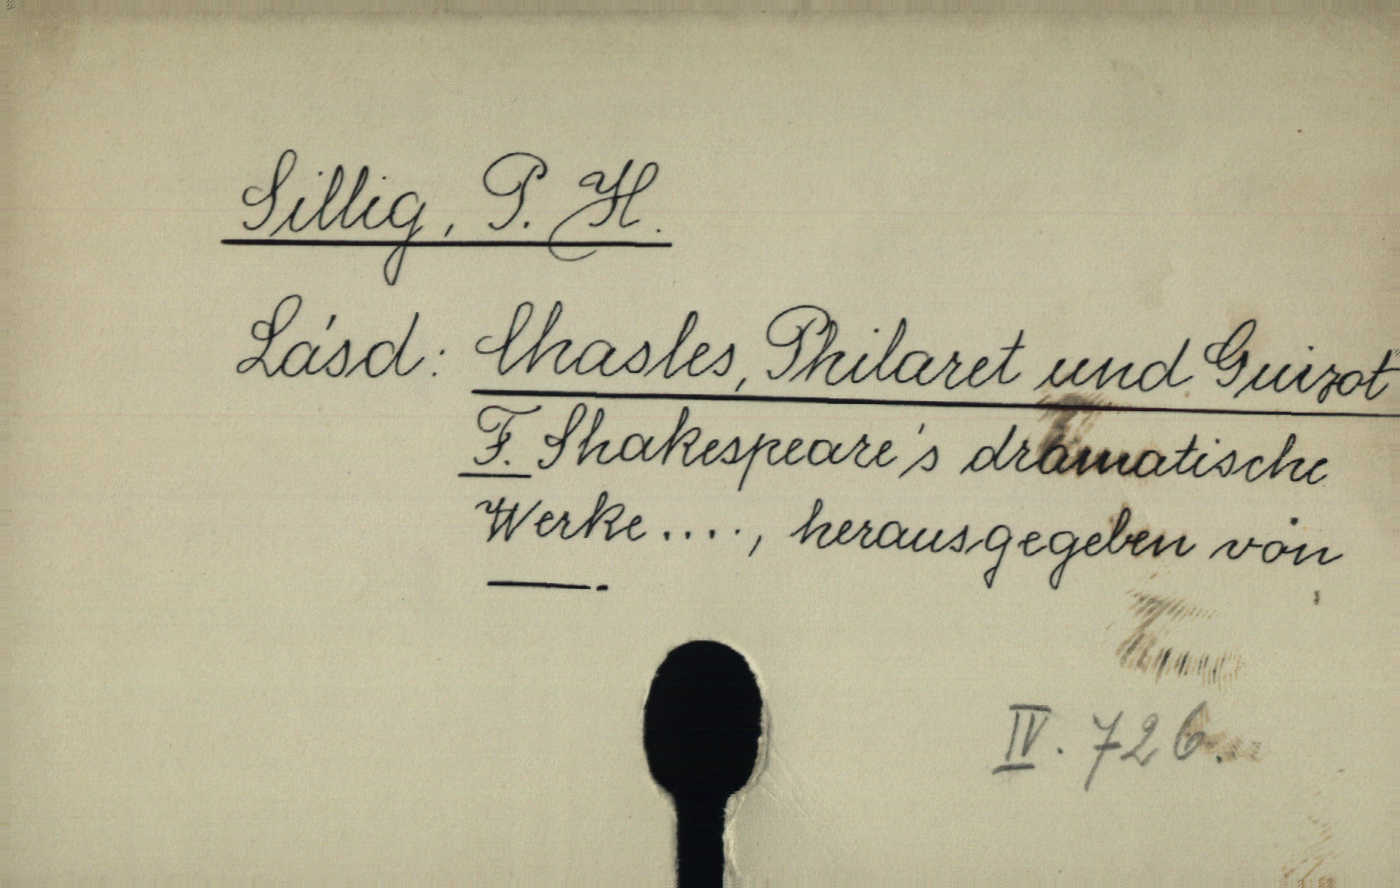 Sillig, P. H.
Lásd: Chasles, Philaret und Guizot
F. Shakespeare's dramatische
Werke...., herausgegeben von
——.
IV. 726.